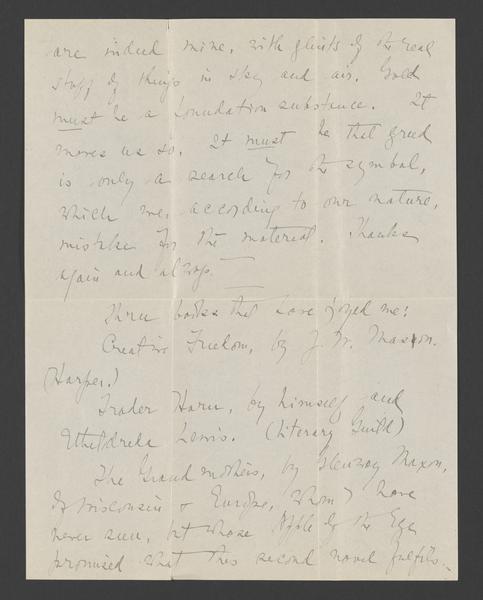 are indeed mine, with glints of the real
stuff of things in sky and air. Gold
must be a foundation substance. It
moves us so. It must be that greed
is only a search for the symbol,
which we, according to our nature,
mistake for the material. Thanks
again and always.
Three books that have joyed me:
Creative Freedom, by J. W. Mason.
(Harper.)
Trader Horn, by himself and
Etheldreda Lewis. (Literary Guild)
The Grandmothers, by Glenway
of Wisconsin & Europe, whom I have
never seen, but whose Apple of the Eye
promised what this second novel fulfils.